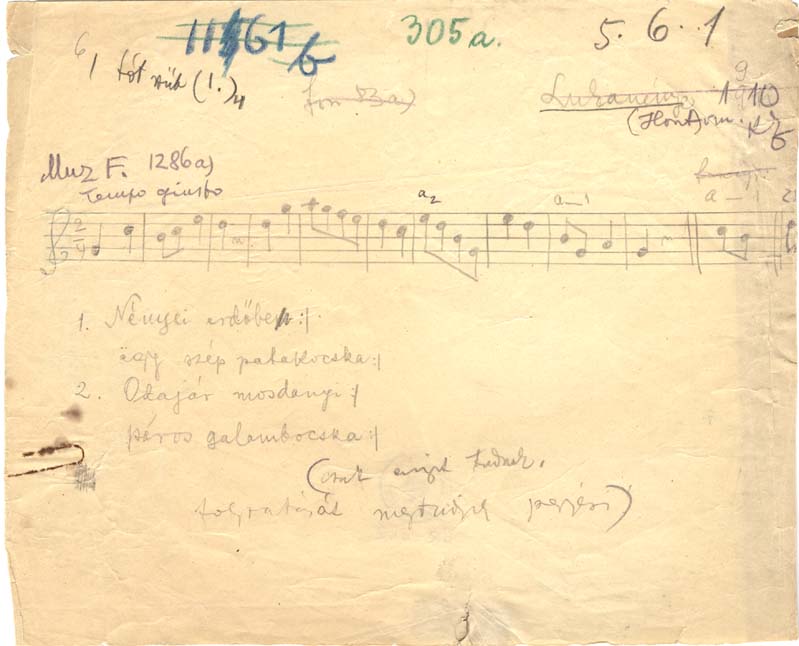 11461/b
305a.
5. 6. 1
6/ tót rúb (1.)4
Lukanénye 1910
(Hont) vm.
Muz F. 1286a)
Tempo giusto
a2
a—1
a—1
2
4
1. Nényei erdőben :/
ëgy szép patakocska :/
2. Odajár mosdanyi :/
páros galambocska :/
(csak ennyit tudnak,
folytatását megtudjuk